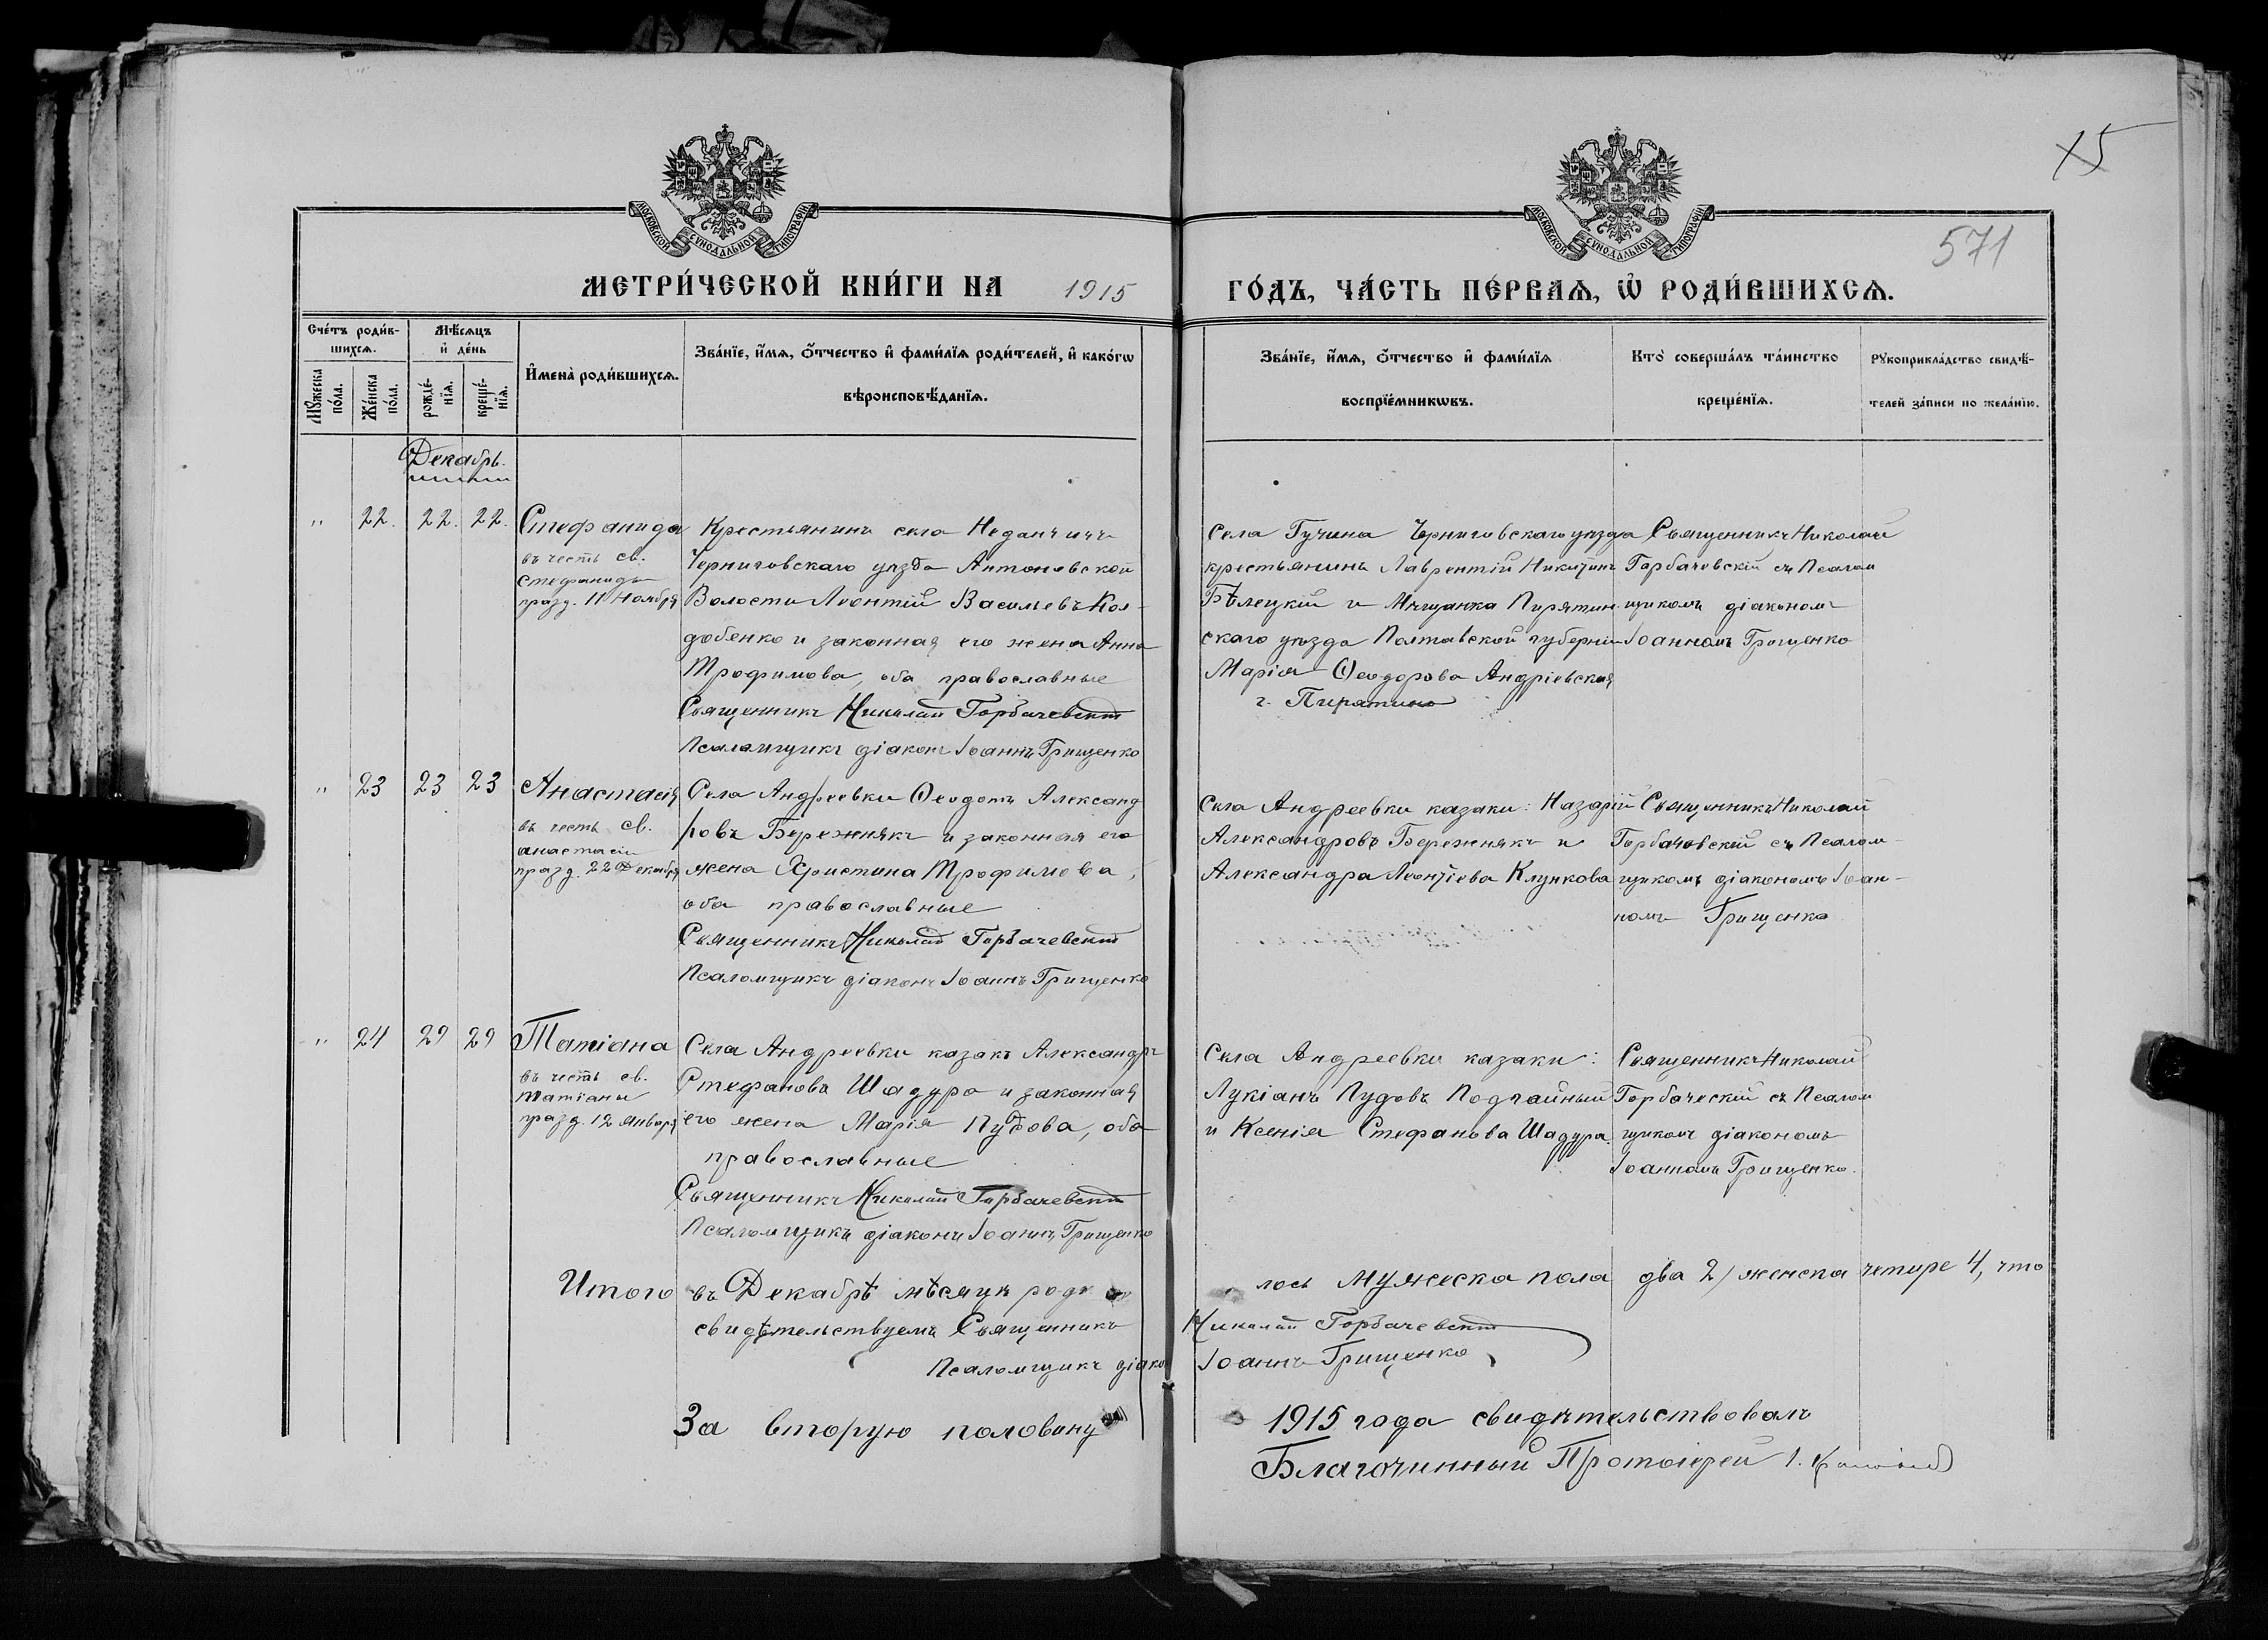 15
571
МОСКОВСКОЙ СѴНОДАЛЬНОЙ ТИПОГРАФІИ
МОСКОВСКОЙ СѴНОДАЛЬНОЙ ТИПОГРАФІИ
МЕТРИ́ЧЕСКОЙ КНИ́ГИ НА 1915 ГО́ДЪ, ЧА́СТЬ ПЕ́РВАѦ, Ѡ҆ РОДИ́ВШИХСѦ.
Сче́тъ роди́в-
шихсѧ.
Мѣ́сѧцъ
и҆ де́нь
Мꙋ́жеска по́ла.
Же́нска по́ла.
рожде́-
нїѧ.
креще́-
нїѧ.
И҆мена̀ роди́вшихсѧ.
Зва́нїе, и҆́мѧ, ѻ҆́тчество и҆ фами́лїѧ роди́телей, и҆ како́гѡ
вѣроисповѣ́данїѧ.
Зва́нїе, и҆́мѧ, ѻ҆́тчество и҆ фами́лїѧ
воспрїе́мникѡвъ.
Кто̀ соверша́лъ та́инство
креще́нїѧ.
Рꙋкоприкла́дство свидѣ́-
телей за́писи по жела́нїю.
Декабрь.
" 22. 22. 22.
Стефанида
въ честь св.
Стефаниды
празд. 11 Ноября
Крестьянинъ села Неданчичъ
Черниговскаго уѣзда Антоновской
Волости Леонтій Васильевъ Кол-
добенко и законная его жена Анна
Трофимова, оба православные
Священникъ Николай Горбачевскій
Псаломщикъ діаконъ Іоаннъ Грищенко
Села Гучина Черниговскаго уѣзда
крестьянинъ Лаврентій Никитинъ
Бѣлецкій и Мѣщанка Пирятин-
скаго уѣзда Полтавской губерніи
Марія Ѳеодорова Андріевская
г. Пирятина
Священникъ Николай
Горбачевскій съ Псалом
щикомъ діакономъ
Іоанномъ Грищенко
" 23 23 23
Анастасія
въ честь св.
Анастасіи
празд. 22 Декабря
Села Андреевки Ѳеодотъ Александ
ровъ Бережнякъ и законная его
жена Христина Трофимова,
оба православные
Священникъ Николай Горбачевскій
Псаломщикъ діаконъ Іоаннъ Грищенко
Села Андреевки казаки: Назарій
Александровъ Бережнякъ и
Александра Леонтіева Клункова
Священникъ Николай
Горбачовскій съ Псалом-
щикомъ діакономъ Іоан-
номъ Грищенко
" 24 29 29
Татіана
въ честь св.
Татіаны
празд. 12 Января
Села Андреевки казакъ Александръ
Стефановъ Шадура и законная
его жена Марія Пудова, оба
православные
Священникъ Николай Горбачевскій
Псаломщикъ діаконъ Іоаннъ Грищенко
Села Андреевки казаки:
Лукіанъ Пудовъ Подгайный
и Ксенія Стефанова Шадура.
Священникъ Николай
Горбаческій съ Псалом
щикомъ діакономъ
Іоанномъ Грищенко.
Итого въ Декабрѣ мѣсяцѣ роди лось мужеска пола два 2/ женска четыре 4, что
свидѣтельствуемъ Священникъ Николай Горбачевскій
Псаломщикъ діако Іоаннъ Грищенко
За вторую половину 1915 года свидѣтельствовалъ
Благочинный Протоіерей І.